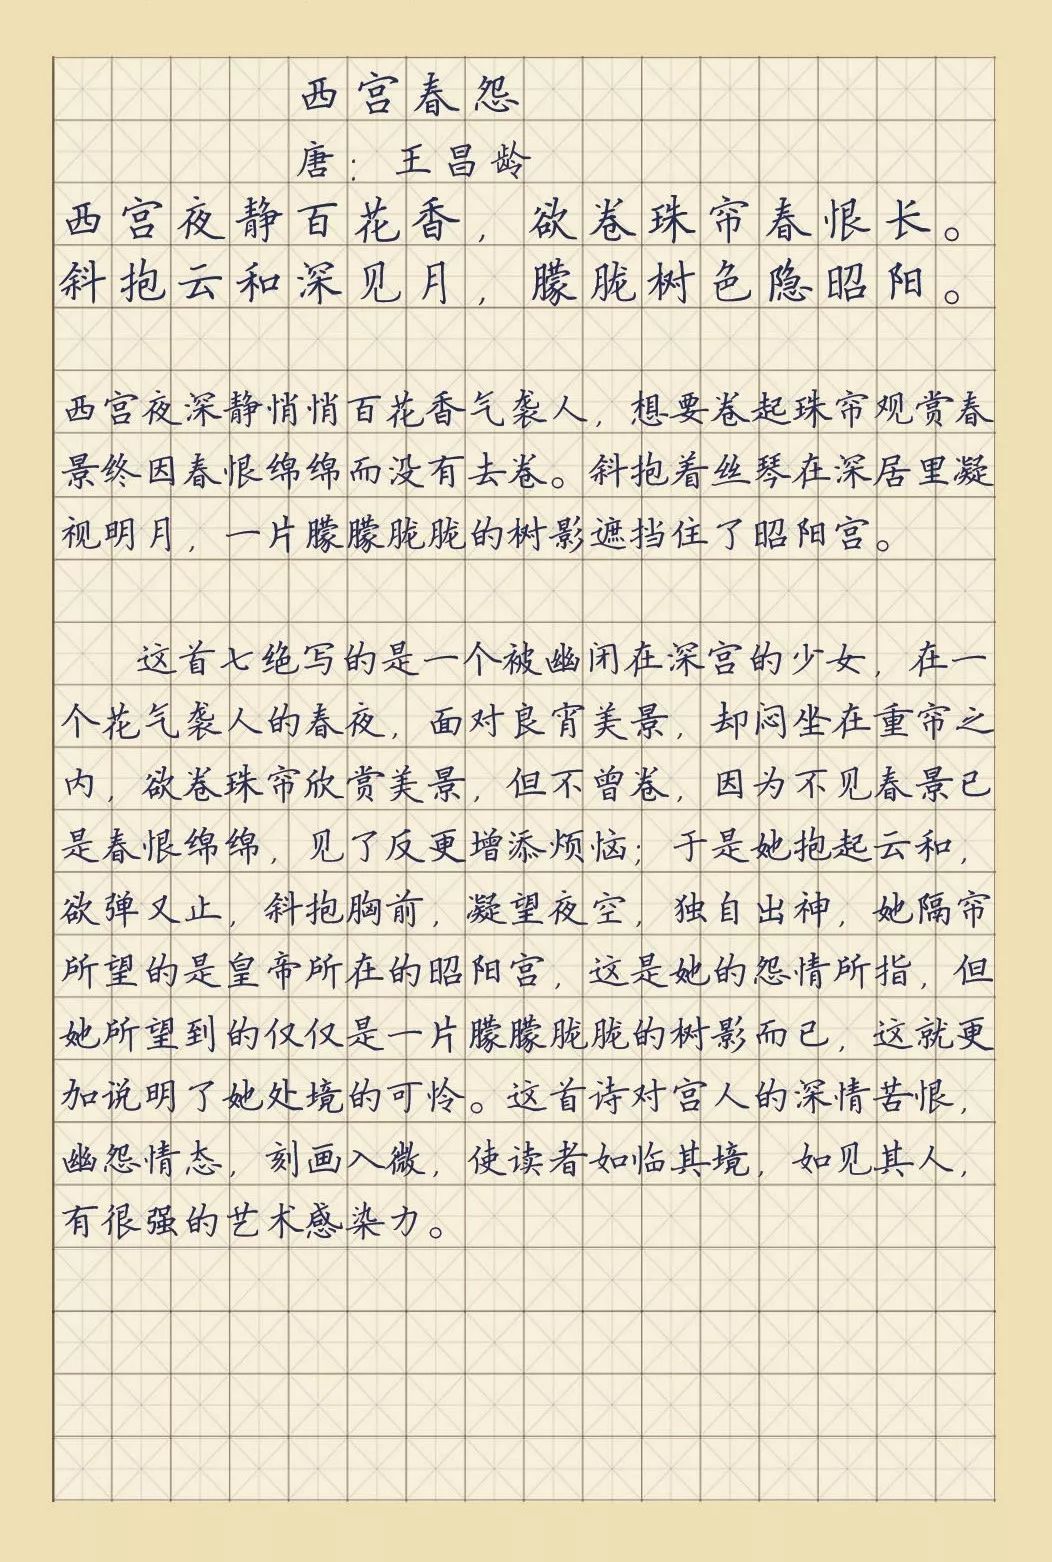 西宫春怨
唐：王昌龄
西宫夜静百花香，欲卷珠帘春恨长。
斜抱云和深见月，朦胧树色隐昭阳。
西宫夜深静悄悄百花香气袭人，想要卷起珠帘观赏春
景终因春恨绵绵而没有去卷。斜抱着丝琴在深居里凝
视明月，一片朦朦胧胧的树影遮挡住了昭阳宫。
这首七绝写的是一个被幽闭在深宫的少女，在一
个花气袭人的春夜，面对良宵美景，却闷坐在重帘之
内，欲卷珠帘欣赏美景，但不曾卷，因为不见春景已
是春恨绵绵，见了反更增添烦恼；于是她抱起云和，
欲弹又止，斜抱胸前，凝望夜空，独自出神，她隔帘
所望的是皇帝所在的昭阳宫，这是她的怨情所指，但
她所望到的仅仅是一片朦朦胧胧的树影而已，这就更
加说明了她处境的可怜。这首诗对宫人的深情苦恨，
幽怨情态，刻画入微，使读者如临其境，如见其人，
有很强的艺术感染力。